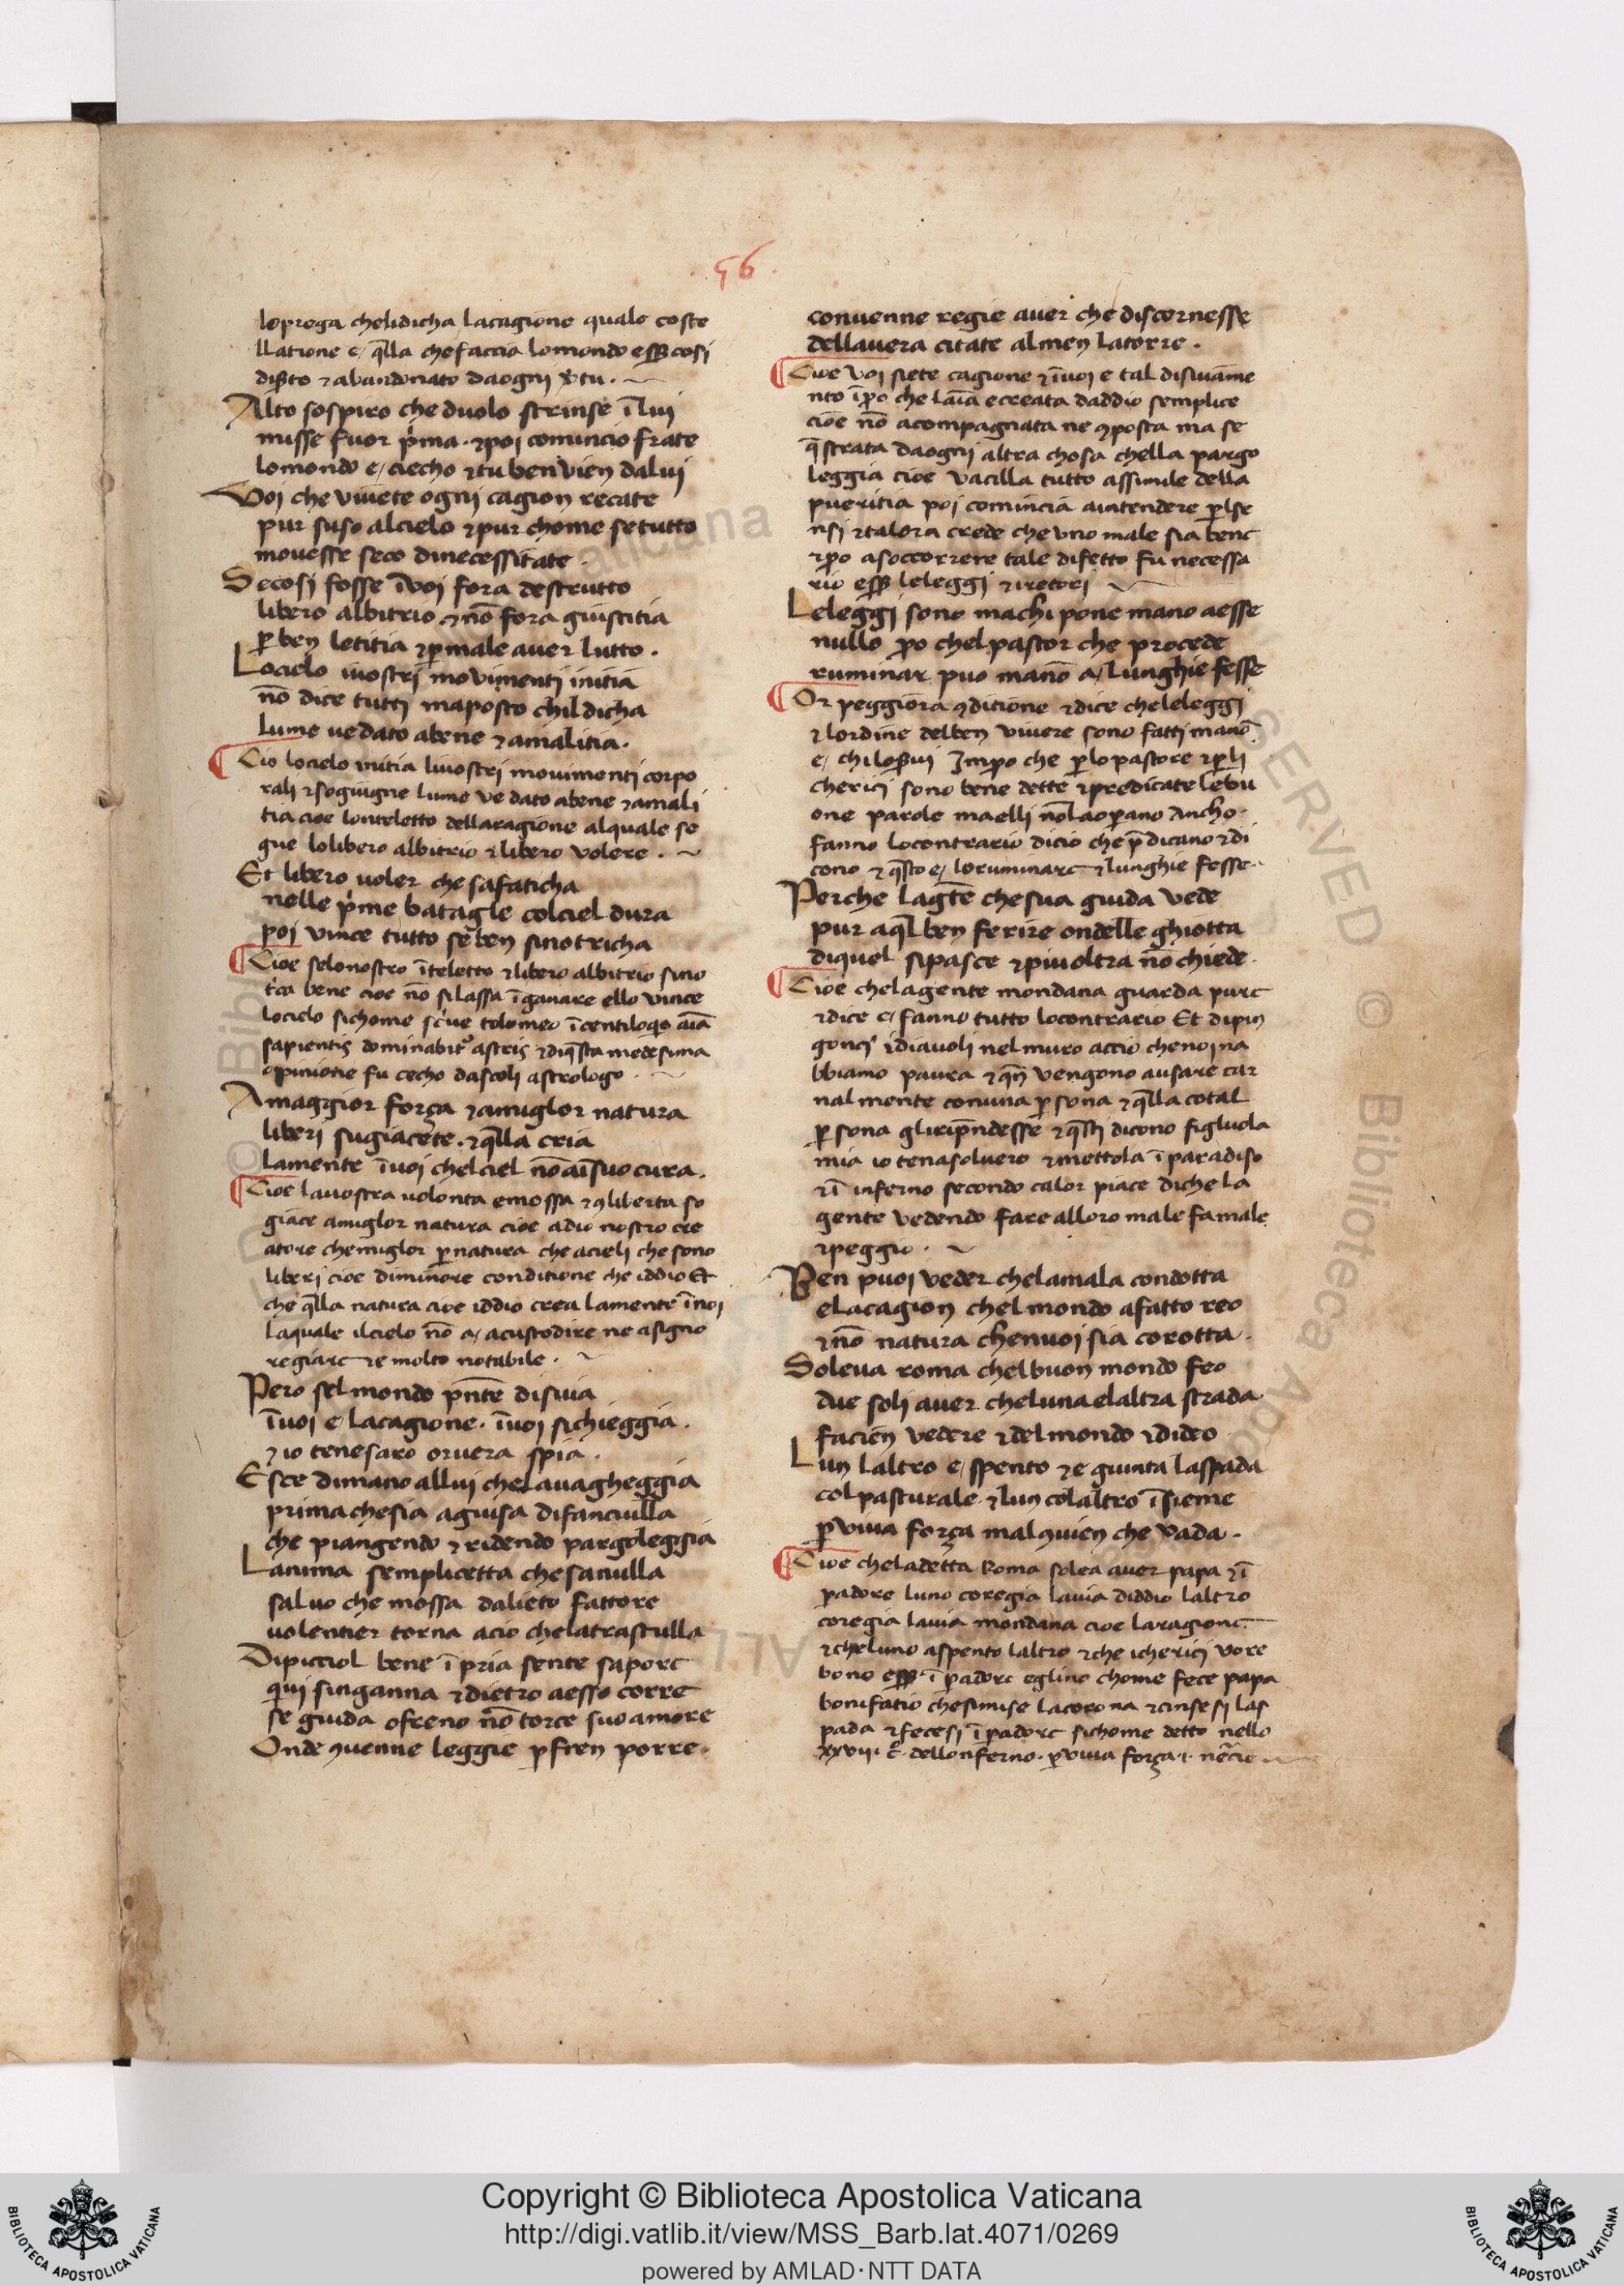 56
lo prega chelidicha lacagione quale coste
llatione e/ q̄lla chefaccia lomondo ess̄ cosi
dis̄to ⁊ abandonato daogni v̓tu .
Alto sospiro che duolo strinse ī lui
misse fuor p̓ma . ⁊poi comincio frate
lomondo e/ ciecho ⁊tu ben vien dalui
Voi che vivete ogni cagion recate
pur suso alcielo ⁊pur chome setutto
movesse seco dinecessitate .
Secosi fosse ī voi fora destrutto
libero albitrio ⁊nō fora giustitia
ꝑ ben letitia ⁊ꝑ male aver lutto .
Locielo ivostri movimenti initia
nō dice tutti maposto chil dicha
lume vedato abene ⁊amalitia .
Cio locielo initia livostri movimenti corpo
rali ⁊soguigne lume ve dato abene ⁊amali
tia cioe lonteletto dellaragione alquale se
gue lolibero albitrio ⁊libero volere .
Et libero voler che safaticha
nelle p̓me batagle colciel dura
poi vince tutto se ben sinotricha
Cioe selonostro īteletto ⁊libero albitrio sino
t̓ca bene cioe nō silassa īganare ello vince
locielo sichome sc̓ve tolomeo ī centiloq̓o aīā
sapientis dominabit᷑ astris ⁊diq̄sta medesima
opinione fu cecho dascoli astrologo .
Amaggior força ⁊amiglor natura
liberi sugiacete . ⁊q̄lla cria
lamente ī voi chelciel nō aī suo cura .
Cioe lavostra volonta emossa ⁊ꝯ liberta so
giace amiglor natura cioe adio nostro cre
atore chemiglor ꝑ natura che acieli che sono
liberi cioe diminore conditione che iddio Et
che q̄lla natura cioe iddio crea lamente ī noi
laquale ilcielo nō a/ acustodire ne asigno
regiare ⁊e molto notabile .
Pero sel mondo pn̄te disvia
ī voi e/ lacagione . ī voi sichieggia .
⁊io tenesaro orvera spia .
Esce dimano allui chelavagheggia
prima chesia aguisa difanciulla
che piangendo ⁊ridendo pargoleggia
Lanima semplicetta chesanulla
salvo che mossa dalieto fattore
volentier torna acio chelatrastulla
Dipicciol bene ī pria sente sapore
qui singanna ⁊dietro aesso corre
se guida ofreno nō torce suo amore
Onde ꝯvenne leggie ꝑ fren porre .
convenne regie aver che discernesse
dellavera citate almen latorre .
Cioe voi siete cagione ⁊ī voi e tal disviame
nto īꝑo che laīa ecreata daddio semplice
cioe nō acompagnata ne ꝯposta ma se
q̄strata daogni altra chosa chella pargo
leggia cioe vacilla tutto assimile della
pueritia poi comincia aintendere ꝑ lse
nsi ⁊talora crede che uno male sia bene
⁊ꝑo asoccorrere tale difetto fu necessa
rio ess̄ leleggi ⁊iretori
Leleggi sono machi pone mano aesse
nullo ꝑo chel pastor che procede
ruminar puo manō a/ lunghie fesse
Or peggiora ꝯditione ⁊dice cheleleggi
⁊lordine delben vivere sono fatti manō
e/ chilos̄vi Imꝑo che ꝑ lo pastore ⁊ꝑ li
cherici sono bene dette ⁊predicate lebu
one parole maelli nōl aoꝑano Ancho
fanno locontrario dicio che p̄dicano ⁊di
cono ⁊q̄sto e/ loruminare ⁊lunghie fesse .
Perche lagēte chesua guida vede
pur aq̄l ben ferire ondelle ghiotta
diquel sipasce ⁊piuoltra nō chiede .
Cioe chelagente mondana guarda pure
⁊dice e/ fanno tutto locontrario Et dipin
gonci idiavoli nel muro accio chenoi na
bbiamo paura ⁊q̄n̄ vengono ausare car
nalmente conuna ꝑsona ⁊q̄lla cotal
ꝑsona gliripn̄desse ⁊q̄sti dicono figluola
mia io tenasolvero ⁊mettola ī paradiso
⁊ī inferno secondo calor piace diche la
gente vedendo fare alloro male fa male
⁊peggio .
Ben puoi veder chelamala condotta
elacagion chel mondo afatto reo
⁊nō natura chenvoi sia corotta .
Soleva roma chelbuon mondo feo
due soli aver cheluna elaltra strada
facien vedere ⁊delmondo ⁊dideo .
Lun laltro e/ spento ⁊e giunta laspada
col pasturale ⁊lun colaltro īsieme
ꝑ viva força mal ꝯvien che vada .
Cioe cheladetta Roma solea aver papa ⁊ī
padore luno coregia lavia diddio laltro
coregia lavia mondana cioe laragione
⁊cheluno aspento laltro ⁊che icherici vore
bono ess̄ ī padore eglino chome fece papa
bonifatio chesimise lacorona ⁊cinsesi las
pada ⁊fecesi ī padore sichome detto nello
xxvii . c̊ . dellonferno . ꝑ viva força .i.
Copyright © Biblioteca Apostolica Vaticana
http://digi.vatlib.it/view/MSS_Barb.lat.4071/0269
powered by AMLAD·NTT DATA
BIBLIOTECA APOSTOLICA VATICANA
BIBLIOTECA APOSTOLICA VATICANA